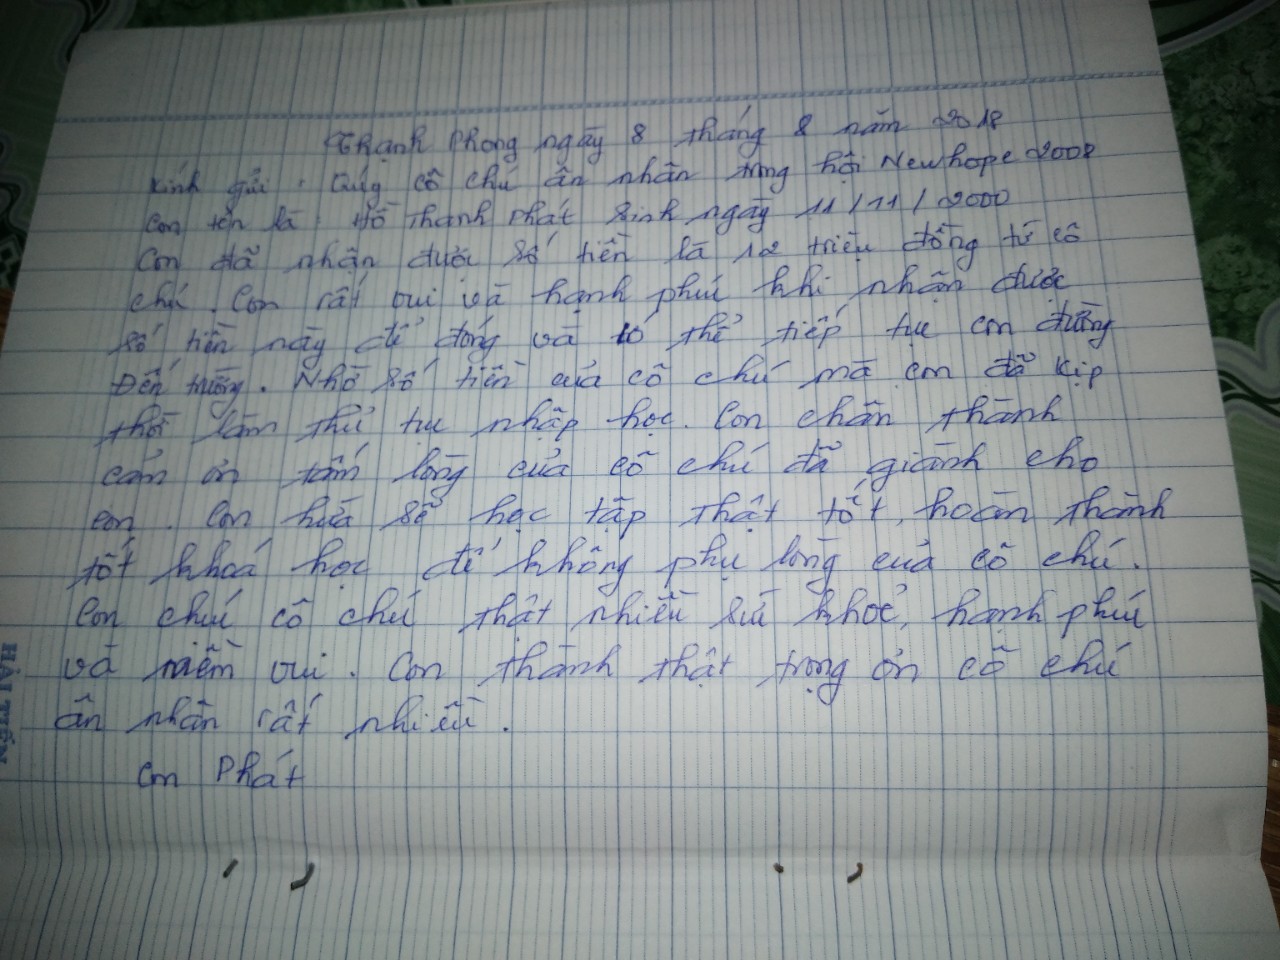 Thạnh Phong ngày 8 tháng 8 năm 2018
Kính gửi : Quý cô chú ân nhân trong hội Newhope 2008
Con tên là : Hồ Thanh Phát Sinh ngày 11/11/2000
Con đã nhận được số tiền là 12 triệu đồng từ cô
chú. Con rất vui và hạnh phúc khi nhận được
số tiền này để đóng và có thể tiếp tục con đường
Đến trường. Nhờ số tiền của cô chú mà con đã kịp
thời làm thủ tục nhập học. Con chân thành
cảm ơn tấm lòng của cô chú đã giành cho
con. Con hứa sẽ học tập thật tốt, hoàn thành
tốt khoá học để không phụ lòng của cô chú.
Con chúc cô chú thật nhiều sức khoẻ, hạnh phúc
và niềm vui. Con thành thật trọng ơn cô chú
ân nhân rất nhiều.
Con Phát
HẢI TIẾN